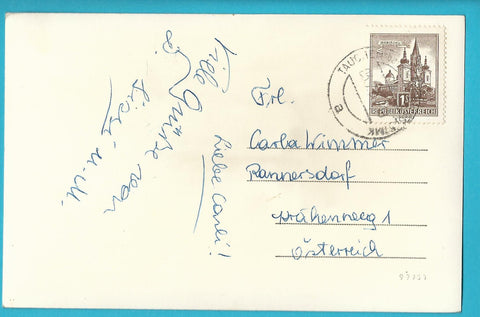 Liebe Carli!
Viele Grüße von
Frl.
Carla Wimmer
Rannersdorf
Krähenweg 1
Österreich
REPUBLIK ÖSTERREICH